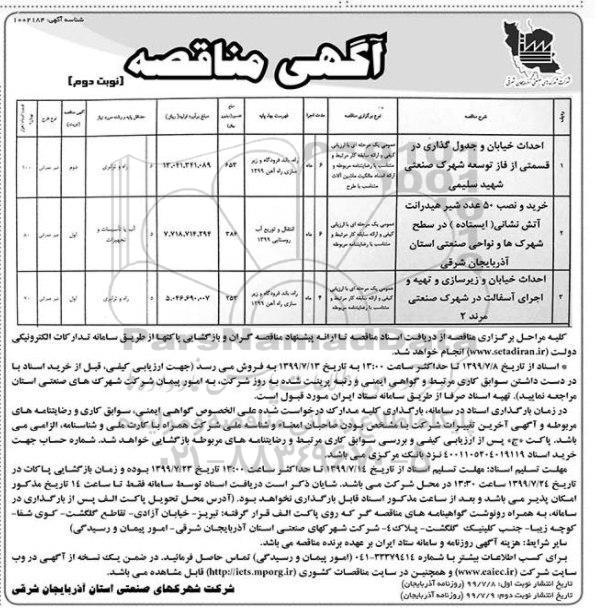 شناسه آگهی: ۱۰۰۲۱۸۴
آگهی مناقصه
[نوبت دوم]
شرکت شهرکهای صنعتی آذربایجان شرقی
ردیف
شرح مناقصه
نوع برگزاری مناقصه
مدت اجرا
فهرست بهاء پایه
مبلغ برآورد اولیه (ریال)
حداقل پایه و رشته مورد نیاز
نوع طرح
۱
احداث خیابان و جدول گذاری در
قسمتی از فاز توسعه شهرک صنعتی
شهید سلیمی
عمومی یک مرحله ای با ارزیابی
کیفی و ارائه سابقه کار مرتبط و
متناسب با رضایتنامه مربوطه و
ارائه اسناد مالکیت ماشین آلات
متناسب با طرح
۶ ماه
راه، باند فرودگاه و زیر
سازی راه آهن ۱۳۹۹
۶۵۳
۱۳,۰۴۱,۳۴۱,۰۸۹
۵
راه و ترابری
دوم
غیر عمرانی
۲
خرید و نصب ۵۰ عدد شیر هیدرانت
آتش نشانی (ایستاده) در سطح
شهرک ها و نواحی صنعتی استان
آذربایجان شرقی
عمومی یک مرحله ای با ارزیابی
کیفی و ارائه سابقه کار مرتبط و
متناسب با رضایتنامه مربوطه
۶ ماه
انتقال و توزیع آب
روستایی ۱۳۹۹
۳۸۶
۷,۷۱۸,۷۱۴,۳۹۴
۵
آب یا تأسیسات و
تجهیزات
اول
غیر عمرانی
۸۰
۳
احداث خیابان و زیرسازی و تهیه و
اجرای آسفالت در شهرک صنعتی
مرند ۲
عمومی یک مرحله ای با ارزیابی
کیفی و ارائه سابقه کار مرتبط و
متناسب با رضایتنامه مربوطه
۴ ماه
راه، باند فرودگاه و زیر
سازی راه آهن ۱۳۹۹
۲۵۳
۵,۰۴۶,۶۹۰,۰۰۷
۵
راه و ترابری
اول
غیر عمرانی
۷۰
کلیه مراحل برگزاری مناقصه از دریافت اسناد مناقصه تا ارائه پیشنهاد مناقصه گران و بازگشایی پاکتها از طریق سامانه تدارکات الکترونیکی
دولت (www.setadiran.ir) انجام خواهد شد.
* اسناد از تاریخ ۱۳۹۹/۷/۸ تا حداکثر ساعت ۱۳:۰۰ به تاریخ ۱۳۹۹/۷/۱۳ به فروش می رسد (جهت ارزیابی کیفی، قبل از خرید اسناد با
در دست داشتن سوابق کاری مرتبط و گواهی ایمنی و رتبه پرینت شده به روز شرکت، به امور پیمان شرکت شهرک های صنعتی استان
مراجعه نمایید). تهیه اسناد صرفا از طریق سامانه ستاد ایران مورد قبول است.
در زمان بارگذاری اسناد در سامانه، بارگذاری کلیه مدارک درخواست شده علی الخصوص گواهی ایمنی، سوابق کاری و رضایتنامه های
مربوطه و آگهی آخرین تغییرات شرکت با مشخص بودن صاحبان امضاء و شناسه ملی شرکت همراه با کارت ملی و شناسنامه، الزامی می
باشد. پاکت «ج» پس از ارزیابی کیفی و بررسی سوابق کاری مرتبط و رضایتنامه های مربوطه بازگشایی خواهد شد. شماره حساب جهت
خرید اسناد ۴۰۰۱۱۰۵۲۰۴۰۱۹۱۱۹ نزد بانک مرکزی می باشد.
مهلت تسلیم اسناد: مهلت تسلیم اسناد از تاریخ ۱۳۹۹/۷/۱۴ تا حداکثر تا ساعت ۱۳:۰۰ تاریخ ۱۳۹۹/۷/۲۳ بوده و زمان بازگشایی پاکات در
تاریخ ۱۳۹۹/۷/۲۴ ساعت ۱۳:۳۰ در محل شرکت می باشد. شایان ذکر است دریافت اسناد توسط سامانه فقط تا ساعت ۱۴ تاریخ مذکور
امکان پذیر می باشد و بعد از ساعت مذکور اسناد قابل بارگذاری نخواهد بود. (آدرس محل تحویل پاکت الف پس از بارگذاری در
سامانه، به همراه رونوشت گواهینامه های مناقصه گر که روی پاکت الف قرار گرفته: تبریز- خیابان آزادی- تقاطع گلگشت- کوی شفا-
کوچه زیبا- جنب کلینیک گلگشت- پلاک۴- شرکت شهرکهای صنعتی استان آذربایجان شرقی- امور پیمان و رسیدگی)
سایر شرایط: هزینه آگهی روزنامه و سامانه ستاد ایران بر عهده برنده مناقصه می باشد.
برای کسب اطلاعات بیشتر با شماره ۳۳۳۷۹۴۱۴-۰۴۱ (امور پیمان و رسیدگی) تماس حاصل فرمائید. در ضمن یک نسخه از آگهی در وب
سایت شرکت (www.eaiec.ir) و همچنین در سایت مناقصات کشوری (http://iets.mporg.ir) قابل مشاهده می باشد.
تاریخ انتشار نوبت اول: ۹۹/۷/۸ (روزنامه آذربایجان)
تاریخ انتشار نوبت دوم: ۹۹/۷/۹ (روزنامه آذربایجان)
شرکت شهرکهای صنعتی استان آذربایجان شرقی
ParsNamadData
۰۲۱-۸۸۳۴۹۶۷۰-۵